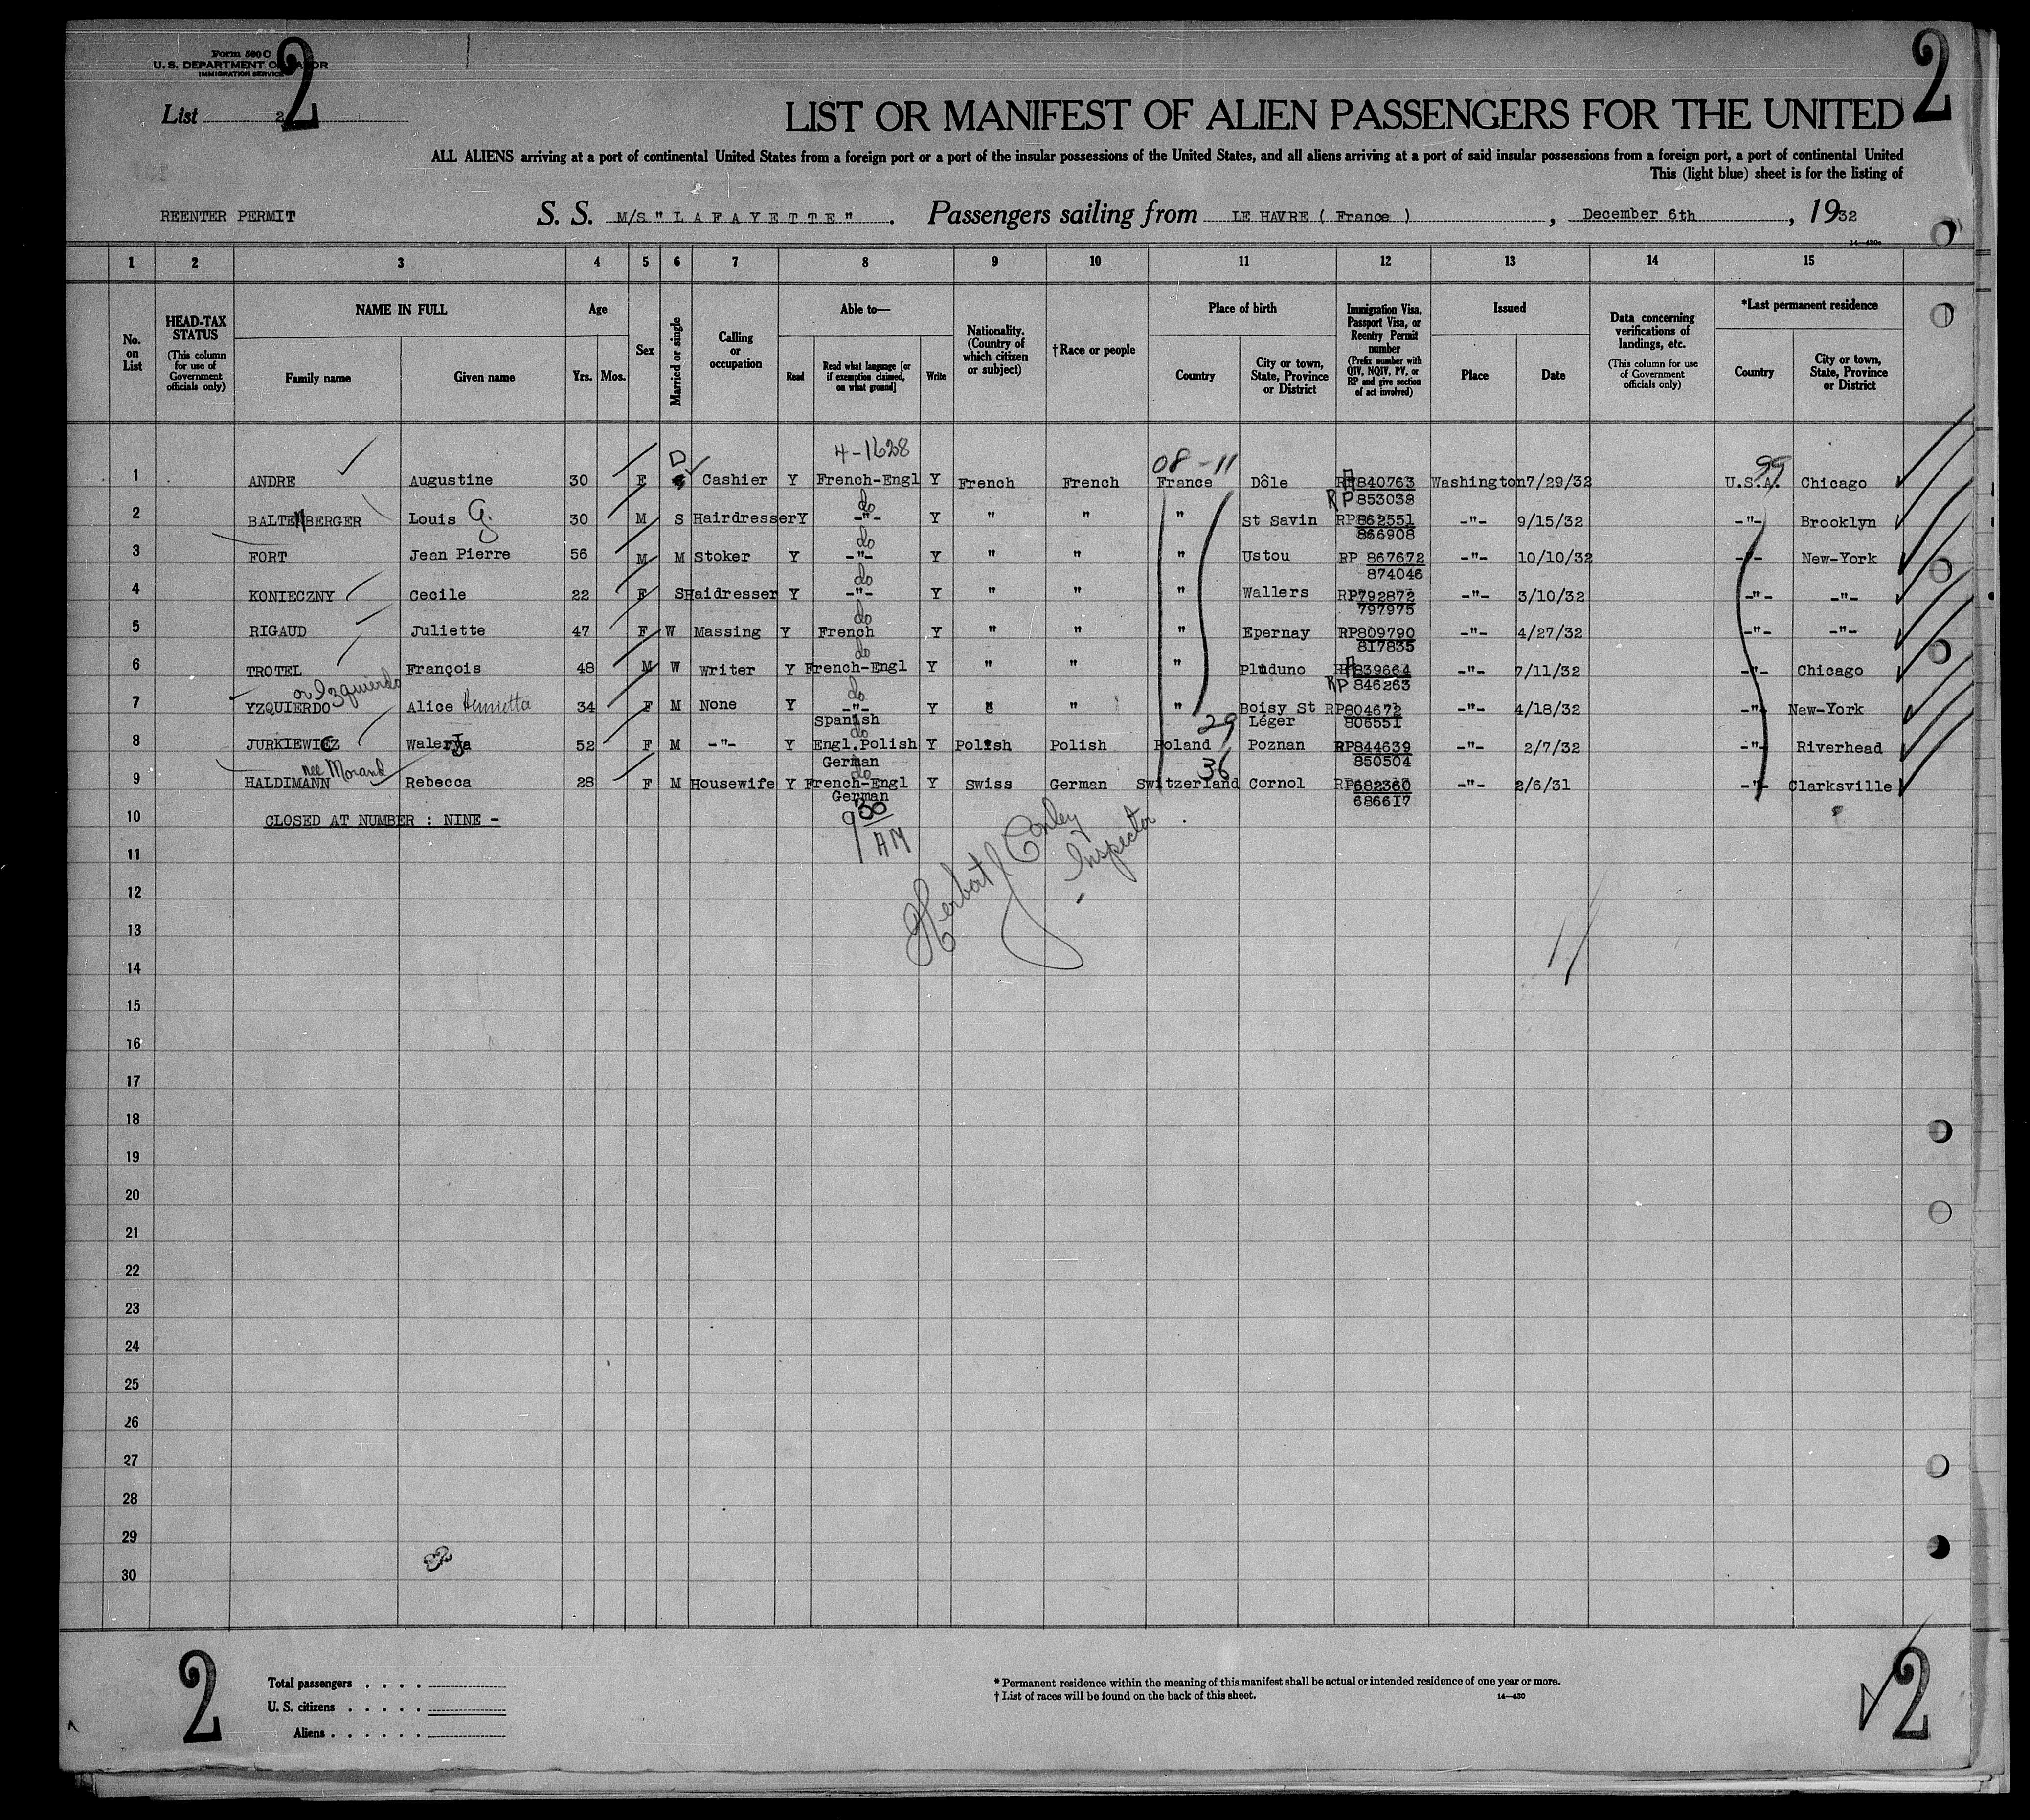 Form 500 C
U. S. DEPARTMENT OF LABOR
IMMIGRATION SERVICE
2
2
List 2
LIST OR MANIFEST OF ALIEN PASSENGERS FOR THE UNITED
ALL ALIENS arriving at a port of continental United States from a foreign port or a port of the insular possessions of the United States, and all aliens arriving at a port of said insular possessions from a foreign port, a port of continental United
This (light blue) sheet is for the listing of
REENTER PERMIT S. S. M/S " L A F A Y E T T E " . Passengers sailing from LE HAVRE ( France ) , December 6th , 1932
14—430a
1 2 3 4 5 6 7 8 9 10 11 12 13 14 15
No. on List
HEAD-TAX STATUS (This column for use of Government officials only)
NAME IN FULL
Family name Given name
Age
Yrs. Mos.
Sex
Married or single
Calling or occupation
Able to—
Read Read what language [or if exemption claimed, on what ground] Write
Nationality. (Country of which citizen or subject)
†Race or people
Place of birth
Country City or town, State, Province or District
Immigration Visa, Passport Visa, or Reentry Permit number (Prefix number with QIV, NQIV, PV, or RP and give section of act involved)
Issued
Place Date
Data concerning verifications of landings, etc. (This column for use of Government officials only)
*Last permanent residence
Country City or town, State, Province or District
4-1628
D 08-11 99
1 ANDRE Augustine 30 F Cashier Y French-Engl Y French French France Dôle RP840763 Washington 7/29/32 U.S.A. Chicago
RP 853038
do
2 BALTENBERGER Louis G. 30 M S Hairdresser Y -"- Y " " " St Savin RP862551 -"- 9/15/32 -"- Brooklyn
866908
do
3 FORT Jean Pierre 56 M M Stoker Y -"- Y " " " Ustou RP 867672 -"- 10/10/32 -"- New-York
874046
do
4 KONIECZNY Cecile 22 F S Haidresser Y -"- Y " " " Wallers RP792872 -"- 3/10/32 -"- -"-
797975
do
5 RIGAUD Juliette 47 F W Massing Y French Y " " " Epernay RP809790 -"- 4/27/32 -"- -"-
817835
do
6 TROTEL François 48 M W Writer Y French-Engl Y " " " Pluduno RP839664 -"- 7/11/32 -"- Chicago
RP 846263
or Izquierdo do
7 YZQUIERDO Alice Henrietta 34 F M None Y -"- Y " " " Boisy St RP804672 -"- 4/18/32 -"- New-York
Spanish 29 Léger 806551
do
8 JURKIEWICZ Walerja 52 F M -"- Y Engl.Polish Y Polish Polish Poland Poznan RP844639 -"- 2/7/32 -"- Riverhead
German 36 850504
nee Morand do
9 HALDIMANN Rebecca 28 F M Housewife Y French-Engl Y Swiss German Switzerland Cornol RP682360 -"- 2/6/31 -"- Clarksville
German 686617
10 CLOSED AT NUMBER : NINE -
9 30
AM
Herbert J Conley
- Inspector
11
12
13
14
15
16
17
18
19
20
21
22
23
24
25
26
27
28
29
30
2
Total passengers . . . .
U. S. citizens . . . . .
Aliens . . . . . .
* Permanent residence within the meaning of this manifest shall be actual or intended residence of one year or more.
† List of races will be found on the back of this sheet. 14—430
2